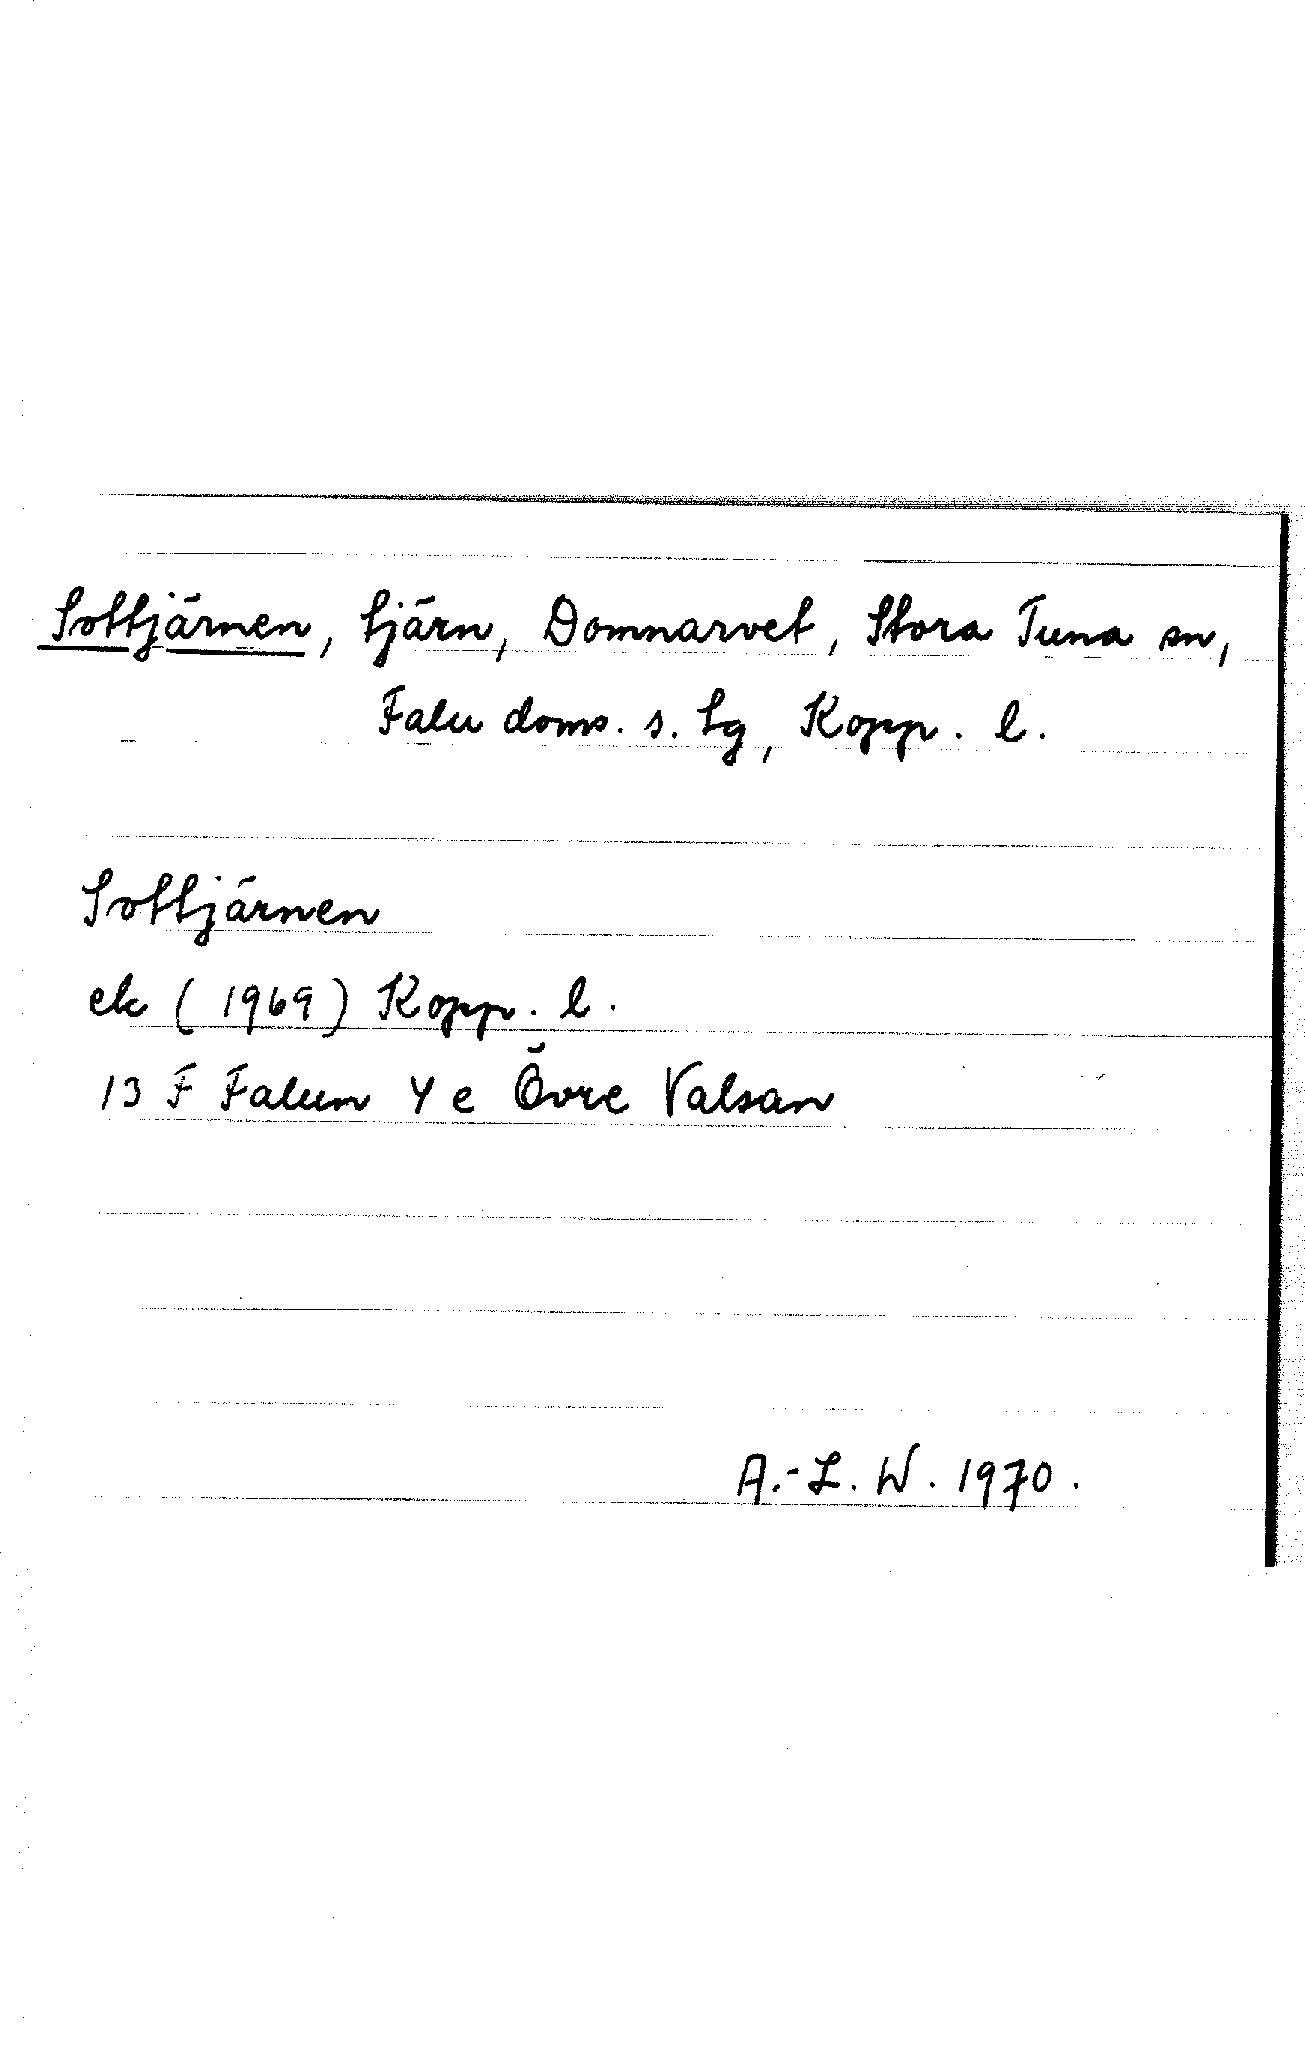 Sottjärnen, tjärn, Domnarvet, Stora Tuna sn,
Falu doms. s. tg, Kopp. l.
Sottjärnen
ek (1969) Kopp. l.
13 F Falun 4 e Övre Valsan
A.-L. W. 1970.